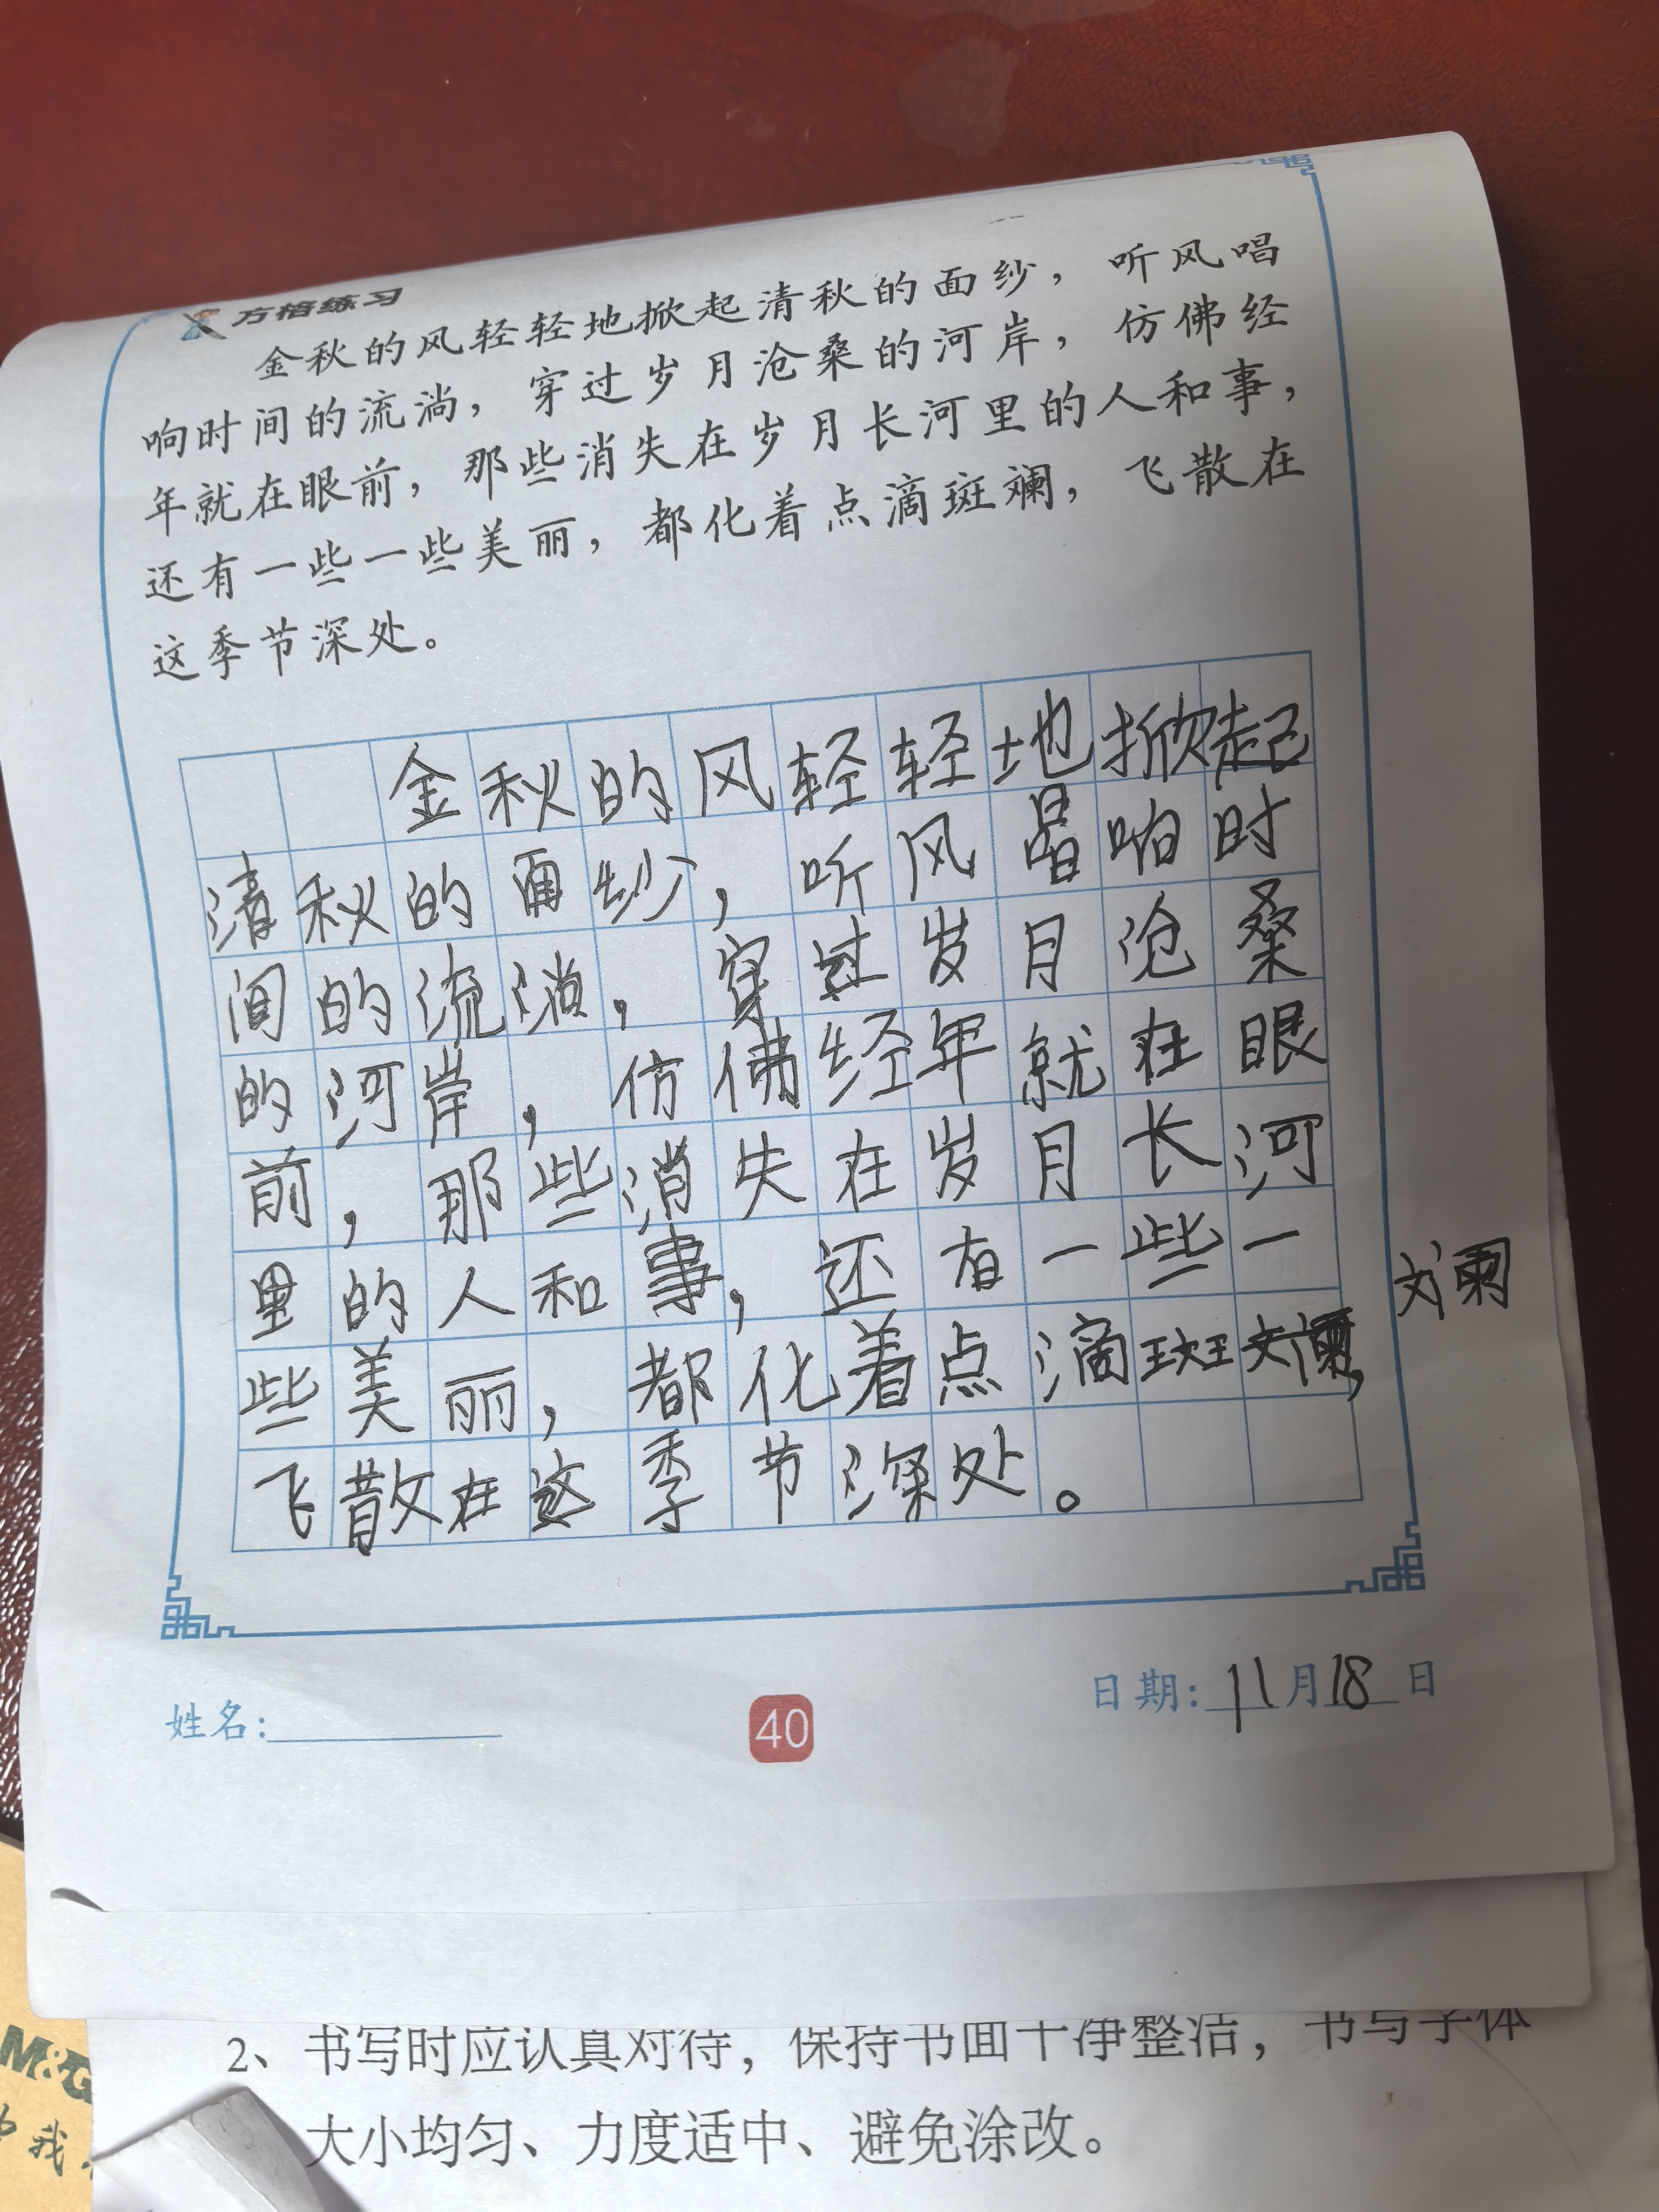 方格练习
金秋的风轻轻地掀起清秋的面纱，听风唱
响时间的流淌，穿过岁月沧桑的河岸，仿佛经
年就在眼前，那些消失在岁月长河里的人和事，
还有一些一些美丽，都化着点滴斑斓，飞散在
这季节深处。
金秋的风轻轻地掀起
清秋的面纱，听风唱响时
间的流淌，穿过岁月沧桑
的河岸，仿佛经年就在眼
前，那些消失在岁月长河
里的人和事，还有一些一
些美丽，都化着点滴斑斓，
飞散在这季节深处。
姓名：
40
日期：11月18日
2、书写时应认真对待，保持书面干净整洁，书写字体
大小均匀、力度适中、避免涂改。
M&G
我